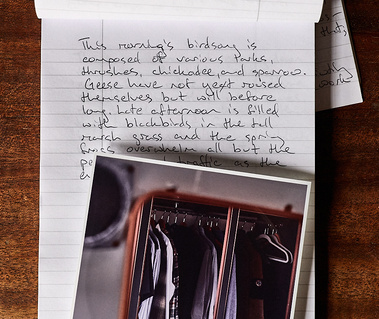 This morning's birdsong is
composed of various larks,
thrushes, chickadee, and sparrow.
Geese have not yet roused
themselves but will before
long. Late afternoon is filled
with blackbirds in the tall
marsh grass and the spring
frogs overwhelm all but the
traffic as the
that,